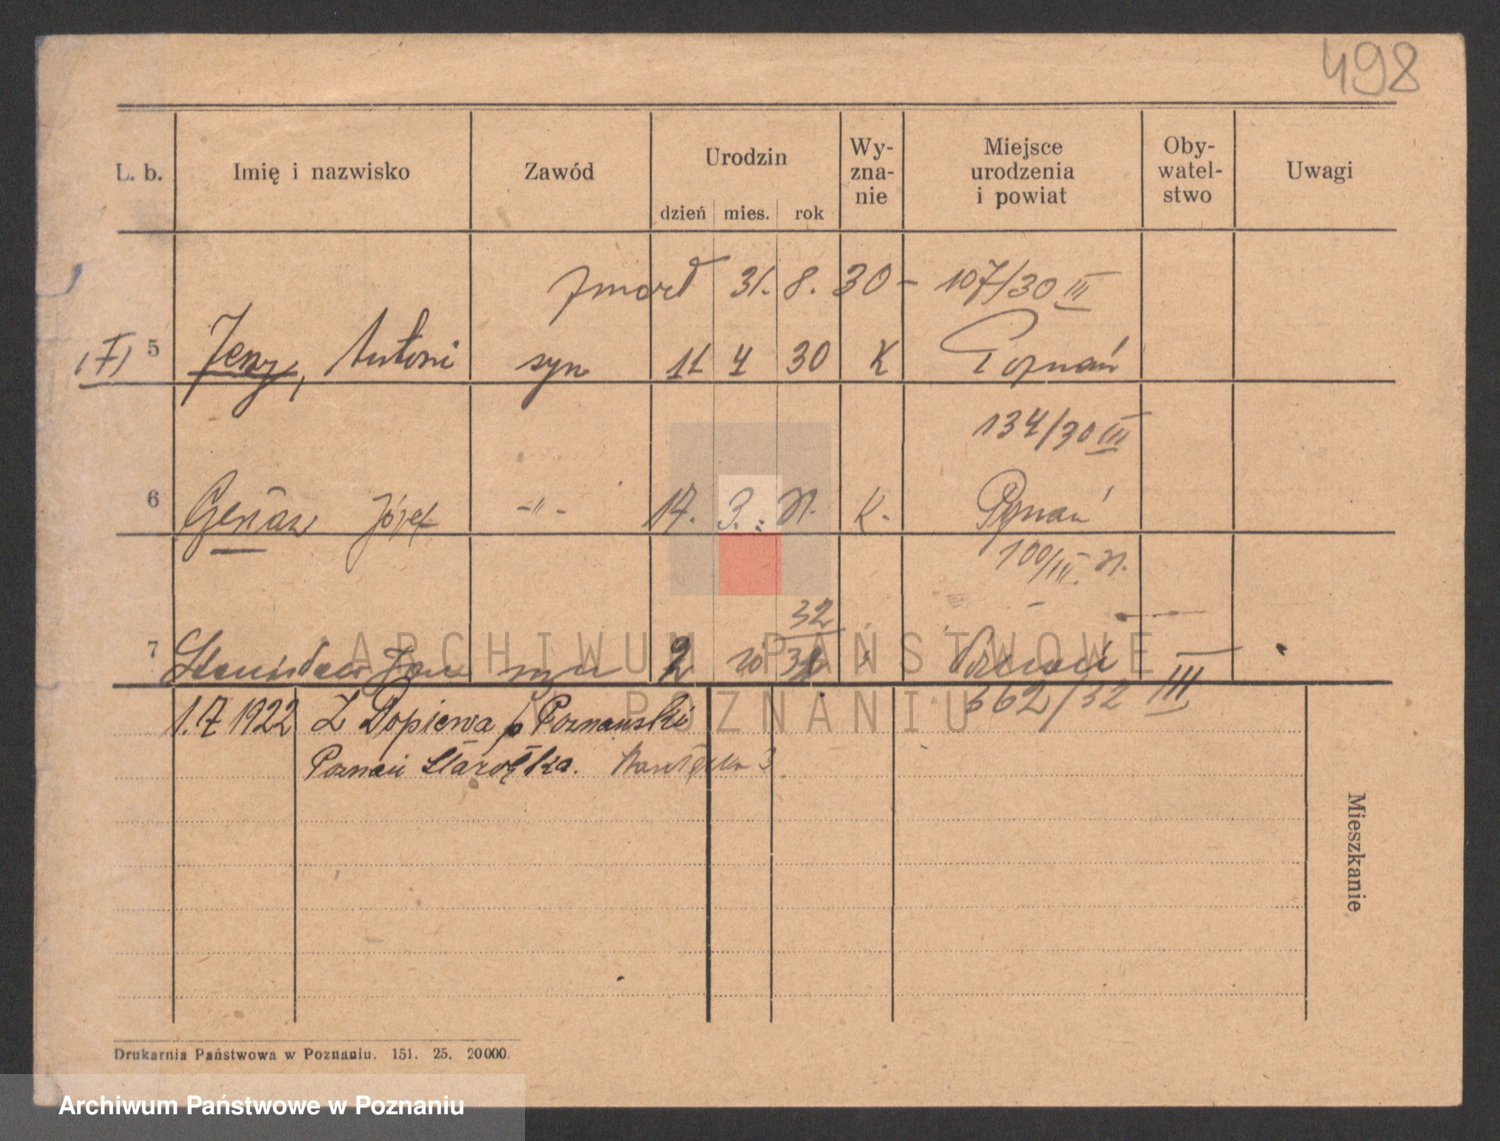 498
L. b. Imię i nazwisko Zawód Urodzin dzień mies. rok Wy-zna-nie Miejsce urodzenia i powiat Oby-watel-stwo Uwagi
zmarł 31. 8. 30 - 107/30 III
5 Jerzy, Antoni syn 11 4 30 K Poznań
134/30 III
6 Józef -"- 17. 3. K. Poznań
100/III.
32
7 Stanisław Jan syn 2 10 31 Poznań
362/32 III
1.7 1922 Z Dopiewa p Poznański
Poznań Starołęka. 3
Mieszkanie
Drukarnia Państwowa w Poznaniu. 151. 25. 20000.
ARCHIWUM PAŃSTWOWE
W POZNANIU
Archiwum Państwowe w Poznaniu